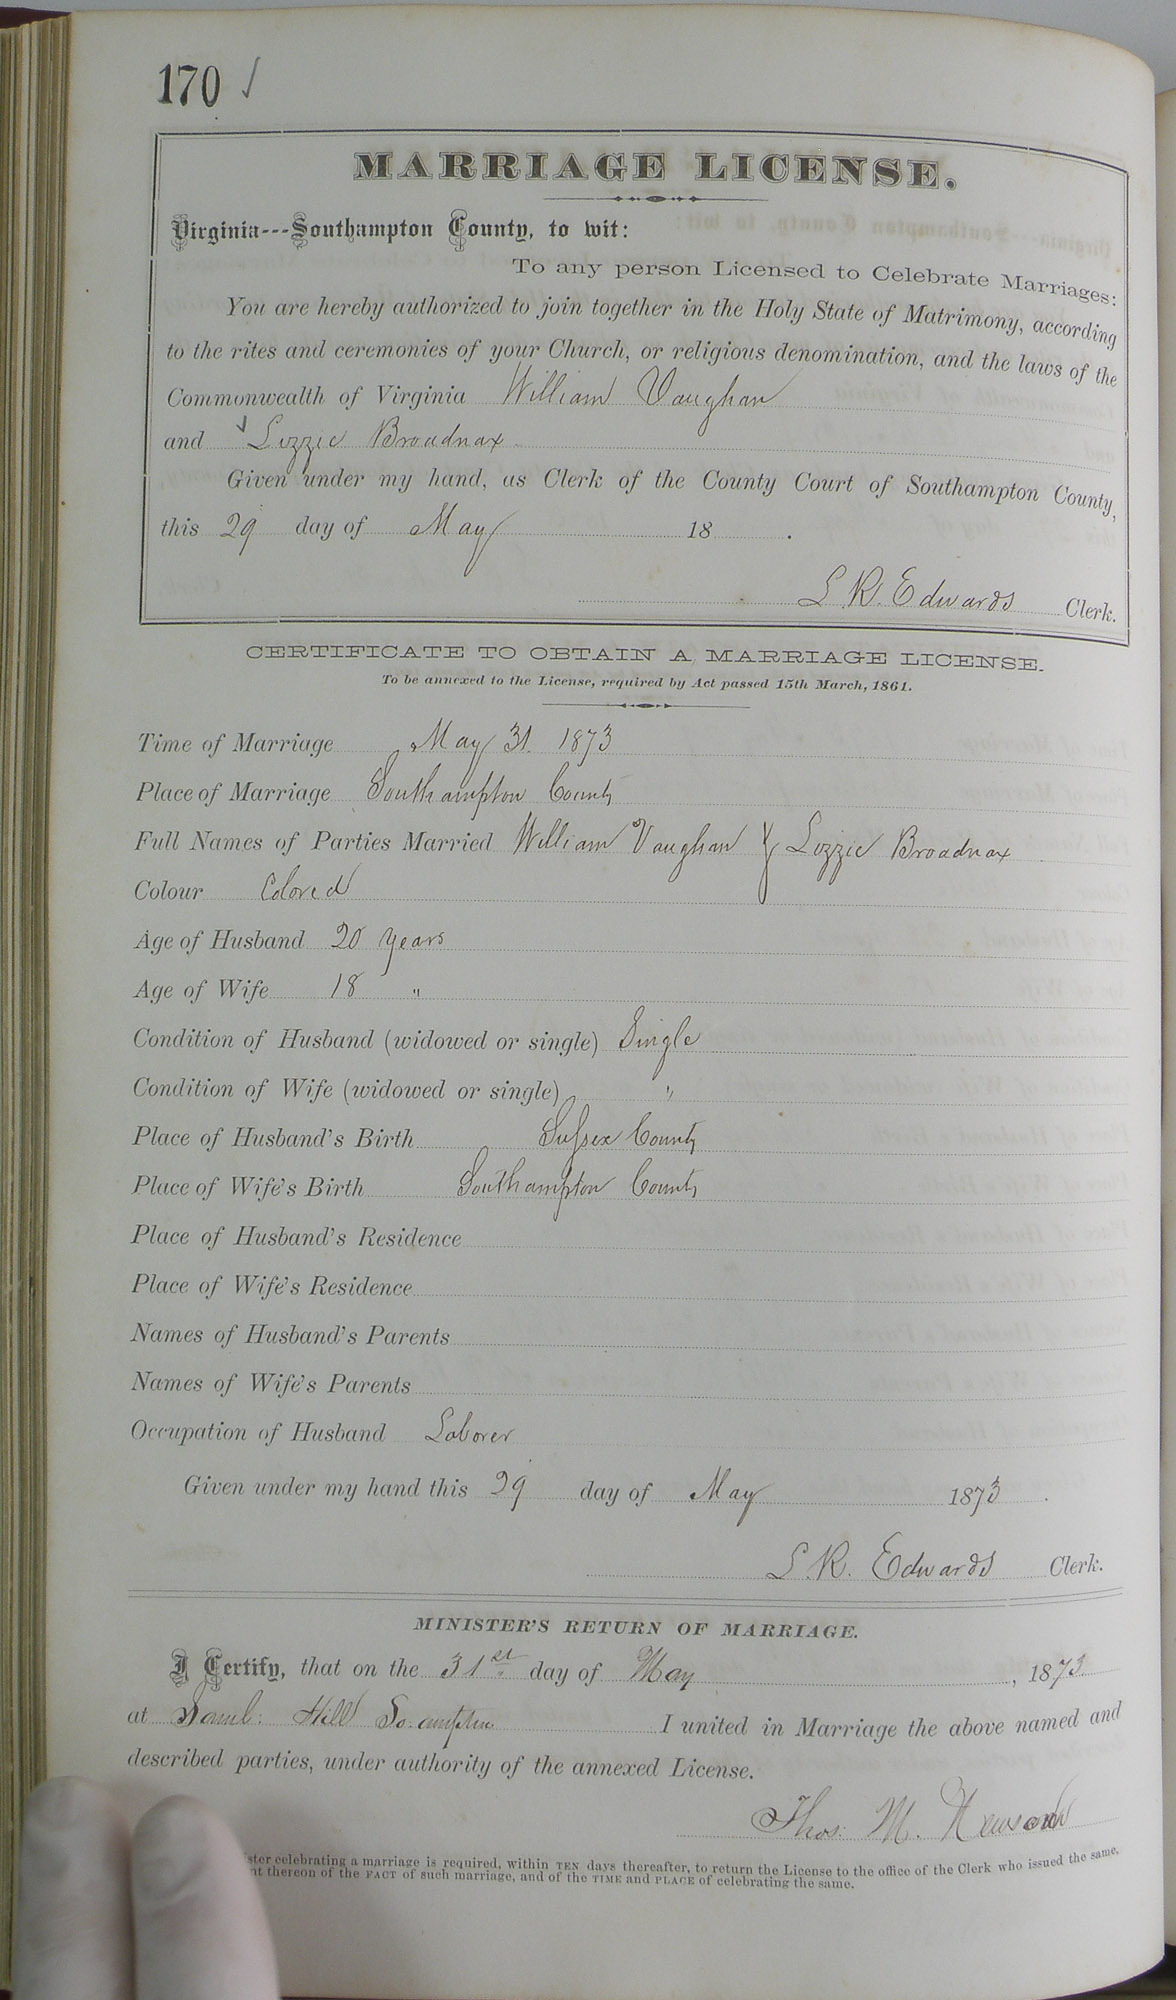 170 /
MARRIAGE LICENSE.
Virginia---Southampton County, to wit:
To any person Licensed to Celebrate Marriages:
You are hereby authorized to join together in the Holy State of Matrimony, according
to the rites and ceremonies of your Church, or religious denomination, and the laws of the
Commonwealth of Virginia William Vaughan
and Lizzie Broadnax
Given under my hand, as Clerk of the County Court of Southampton County,
this 29 day of May 18 .
L. R. Edwards Clerk.
CERTIFICATE TO OBTAIN A MARRIAGE LICENSE.
To be annexed to the License, required by Act passed 15th March, 1861.
Time of Marriage May 31. 1873
Place of Marriage Southampton County
Full Names of Parties Married William Vaughan & Lizzie Broadnax
Colour Colored
Age of Husband 20 years
Age of Wife 18 "
Condition of Husband (widowed or single) Single
Condition of Wife (widowed or single) "
Place of Husband's Birth Sussex County
Place of Wife's Birth Southampton County
Place of Husband's Residence
Place of Wife's Residence
Names of Husband's Parents
Names of Wife's Parents
Occupation of Husband Laborer
Given under my hand this 29 day of May 1873 .
L. R. Edwards Clerk.
MINISTER'S RETURN OF MARRIAGE.
I Certify, that on the 31st day of May , 1873
at Saml: Hill So. ampton I united in Marriage the above named and
described parties, under authority of the annexed License.
Thos: M. Newsom
ster celebrating a marriage is required, within TEN days thereafter, to return the License to the office of the Clerk who issued the same,
nt thereon of the FACT of such marriage, and of the TIME and PLACE of celebrating the same.